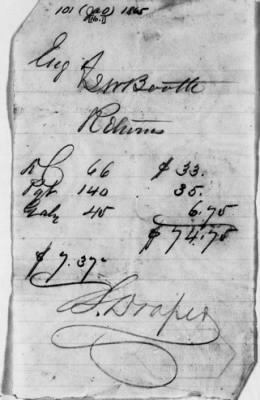 101 (JAG) 1865
Eng of
D W Booth
Returns
R L 66 $ 33.
Pgt 140 35.
Galy 45 6.75
$ 74.75
$ 7.37
S. Draper